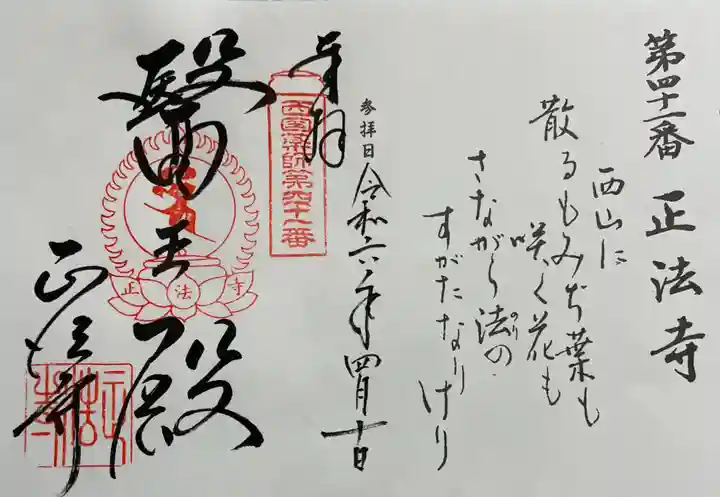 第四十一番 正法寺
西山に
散るもみぢ葉も
咲く花も
さながら法の
のり
すがたなりけり
参拝日 令和六年四月十日
奉拝
西國薬師第四十一番
醫王殿
正法寺
正法寺
正法寺